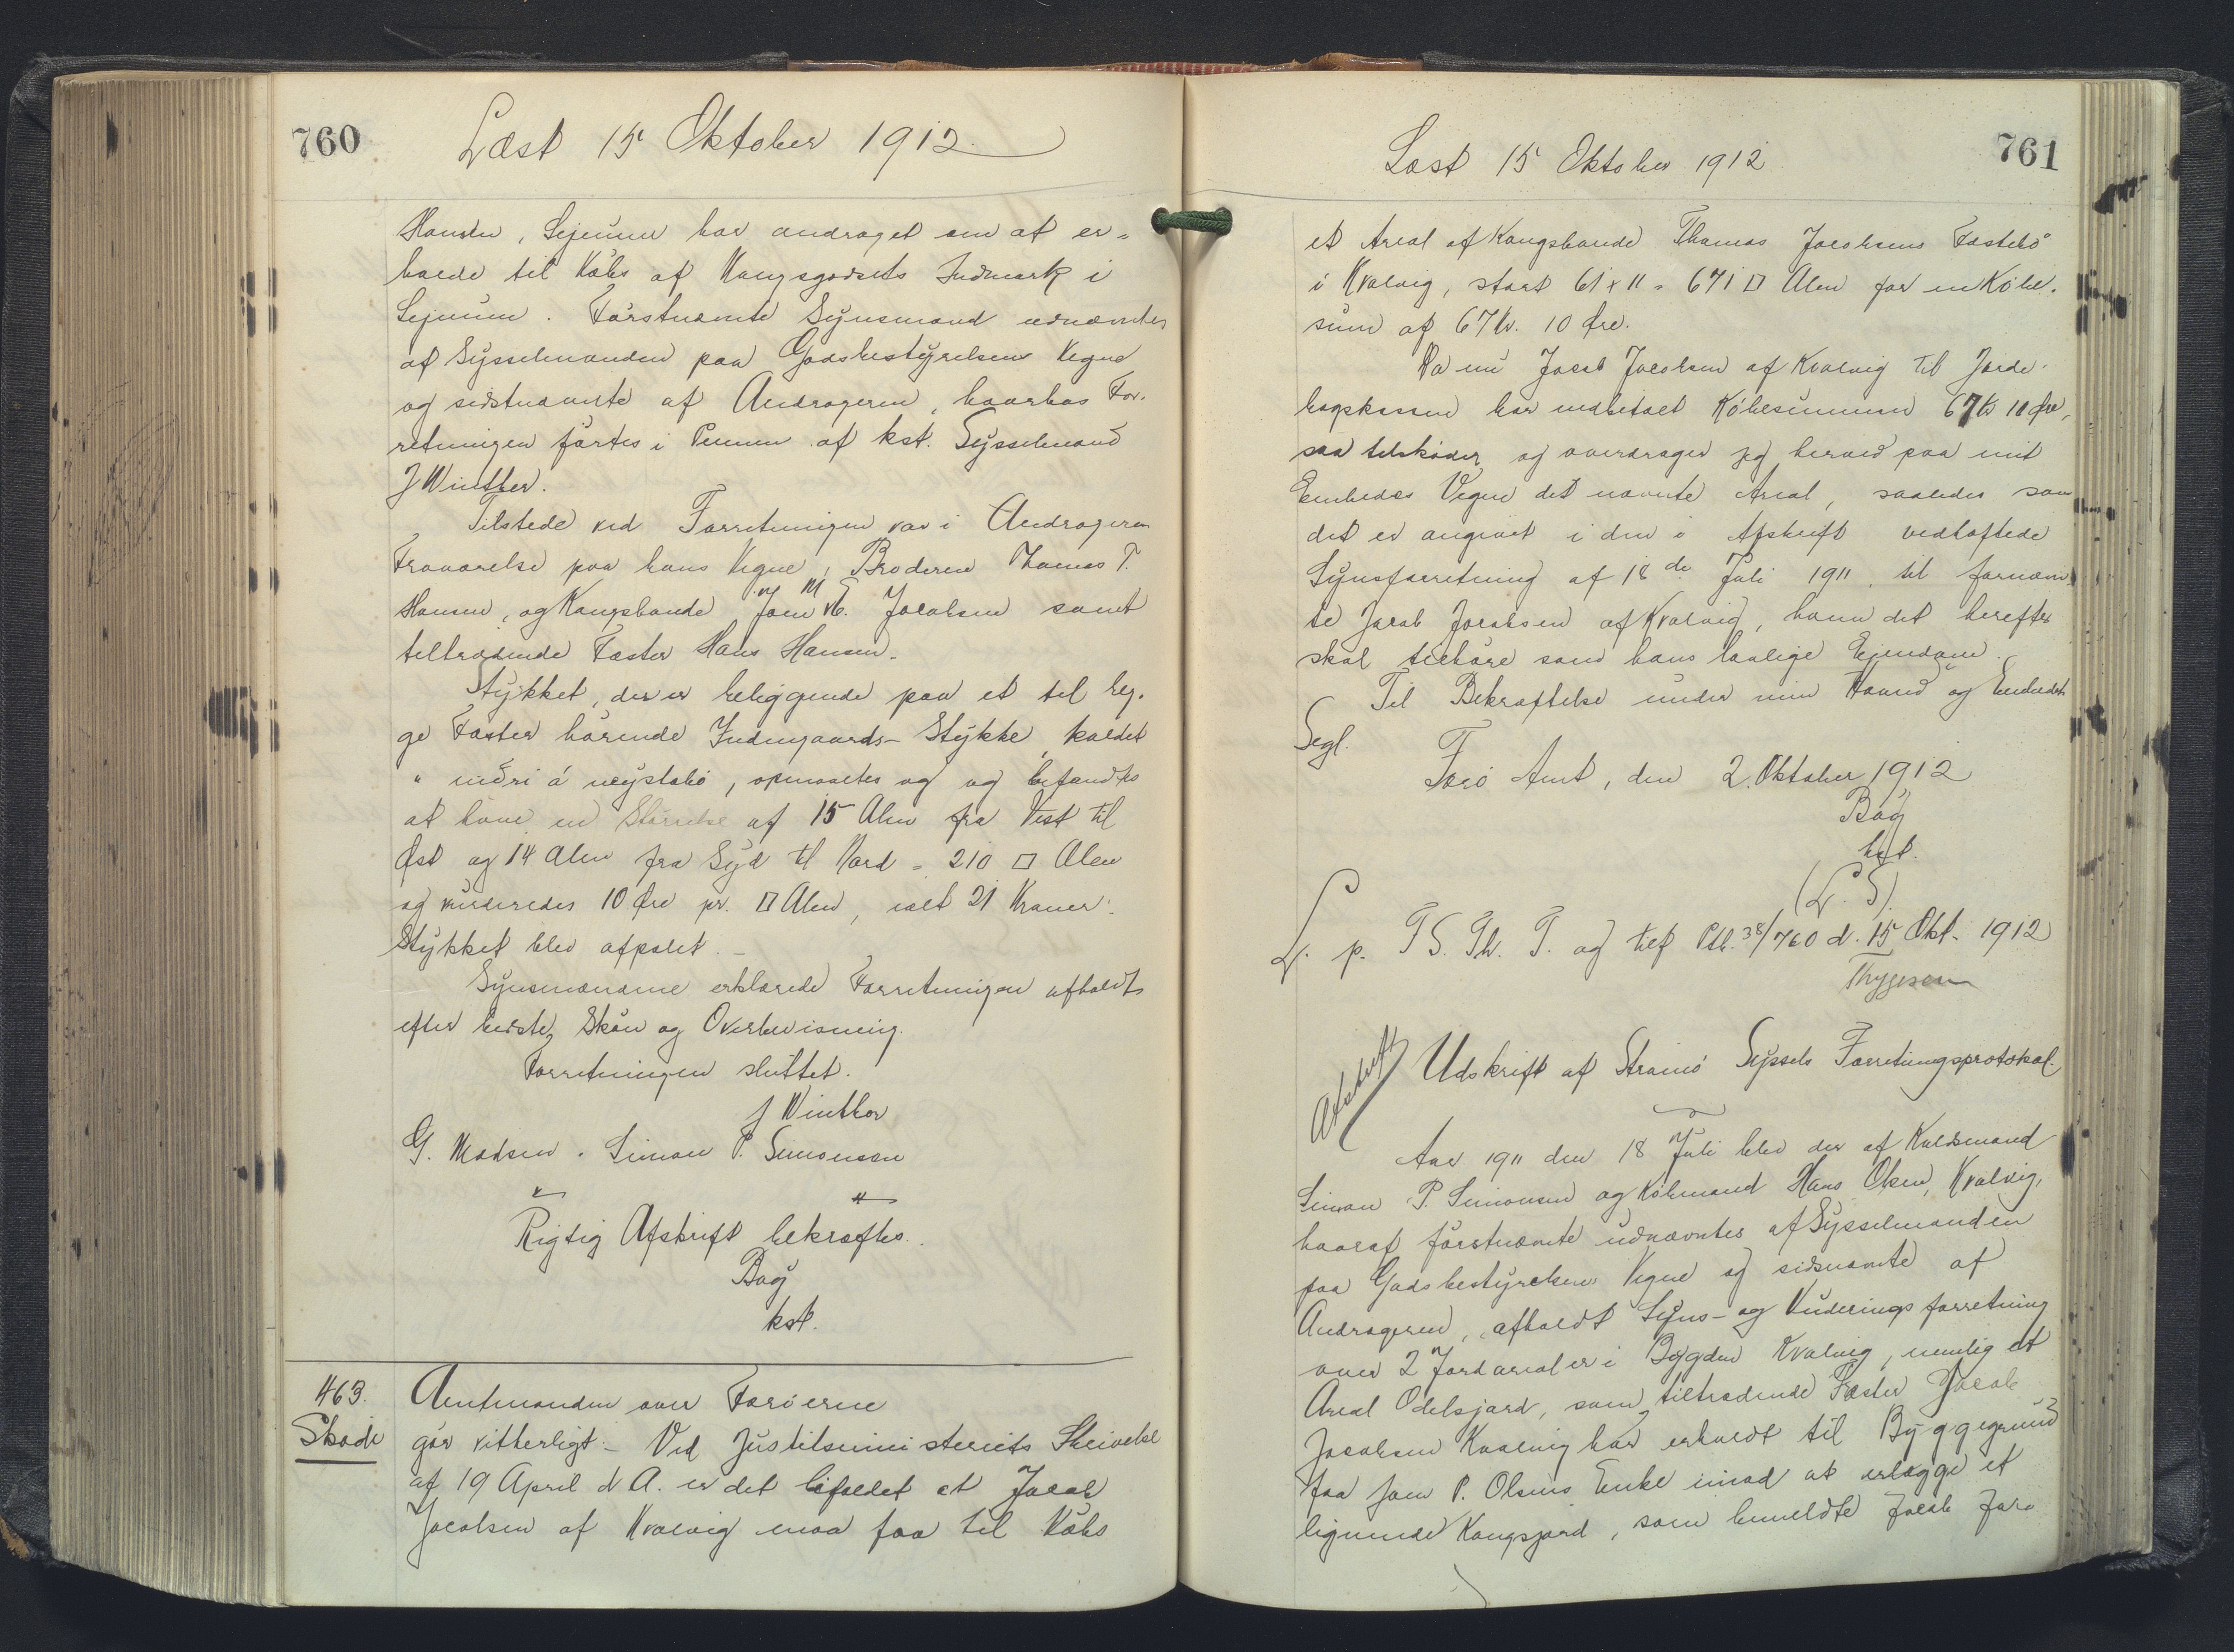 760
Læst 15 Oktober 1912.
Hansen, Lejnum har andraget om at er-
holde til Købs af Kongsgodsets Indmark i
Lejnum. Førstnævnte Synsmand udnævntes
af Sysselmanden paa Godsbestyrelsens Vegne
og sidstnævnte af Andrageren, hvorhos For-
retningen førtes i Pennen af kst. Sysselmand
J Winther.
Tilstede ved Forretningen var i Andragerens
Fraværelse paa hans Vegne, Broderen Thomas T.
Hansen, og Kongsbonde Joen M. Jacobsen samt
tiltrædende Fæster Hans Hansen.
Stykket, der er beliggende paa et til beg-
ge Fæster hørende Indengaards-Stykke, kaldet
" niðri á neystabø, opmaaltes og og befandtes
at have en Størrelse af 15 Alen fra Vest til
Øst og 14 Alen fra Syd til Nord = 210 □ Alen
og vurderedes 10 Øre pr. □ Alen, ialt 21 Kroner.
Stykket blev afpælet.
Synsmændene erklærede Forretningen afholdt
efter bedste Skøn og Overbevisning.
Forretningen sluttet.
J Winther
G. Madsen. Simon P. Simonsen
Rigtig Afskrift bekræftes.
Bøg
kst.
463.
Skøde
Amtmanden over Færøerne
gør vitterligt: Ved Justitsministeriets Skrivelse
af 19 April d A. er det bifaldet at Jacob
Jacobsen af Kvalvig maa faa til Købs
761
Læst 15 Oktober 1912
et Areal af Kongsbonde Thomas Jacobsens Fæstebø
i Kvalvig, stort 61 x 11 = 671 □ Alen for en Købe-
sum af 67 Kr. 10 Øre.
Da nu Jacob Jacobsen af Kvalvig til Jorde-
bogskassen har indbetalt Købesummen 67 Kr 10 Øre,
saa tilskøder og overdrager jeg herved paa mit
Embedes Vegne det nævnte Areal, saaledes som
det er angivet i den i Afskrift vedhæftede
Synsforretning af 18de Juli 1911, til fornævn-
te Jacob Jacobsen af Kvalvig, hvem det herefter
skal tilhøre som hans lovlige Ejendom.
Til Bekræftelse under min Haand og Embedets
Segl.
Færø Amt, den 2. Oktober 1912
Bøg
kst.
(L. S.)
L. p. T S. Th. T. og tilf Ptk. 38/760 d. 15 Okt. 1912
Thygesen
Afskrift
Udskrift af Strømø Syssels Forretningsprotokol.
Aar 1911 den 18 Juli blev der af Kaldsmand
Simon P. Simonsen og Købmand Hans Olsen, Kvalvig,
hvoraf førstnævnte udnævntes af Sysselmanden
paa Godsbestyrelsens Vegne og sidsnævnte af
Andrageren, afholdt Syns- og Vurderingsforretning
over 2 Jordarealer i Bygden Kvalvig, nemlig et
Areal Odelsjord, som tiltrædende Fæster Jacob
Jacobsen Kvalvig har erholdt til Byggegrund
fra Joen P. Olsens Enke imod at erlægge et
lignende Kongsjord, som bemeldte Jacob Jaco